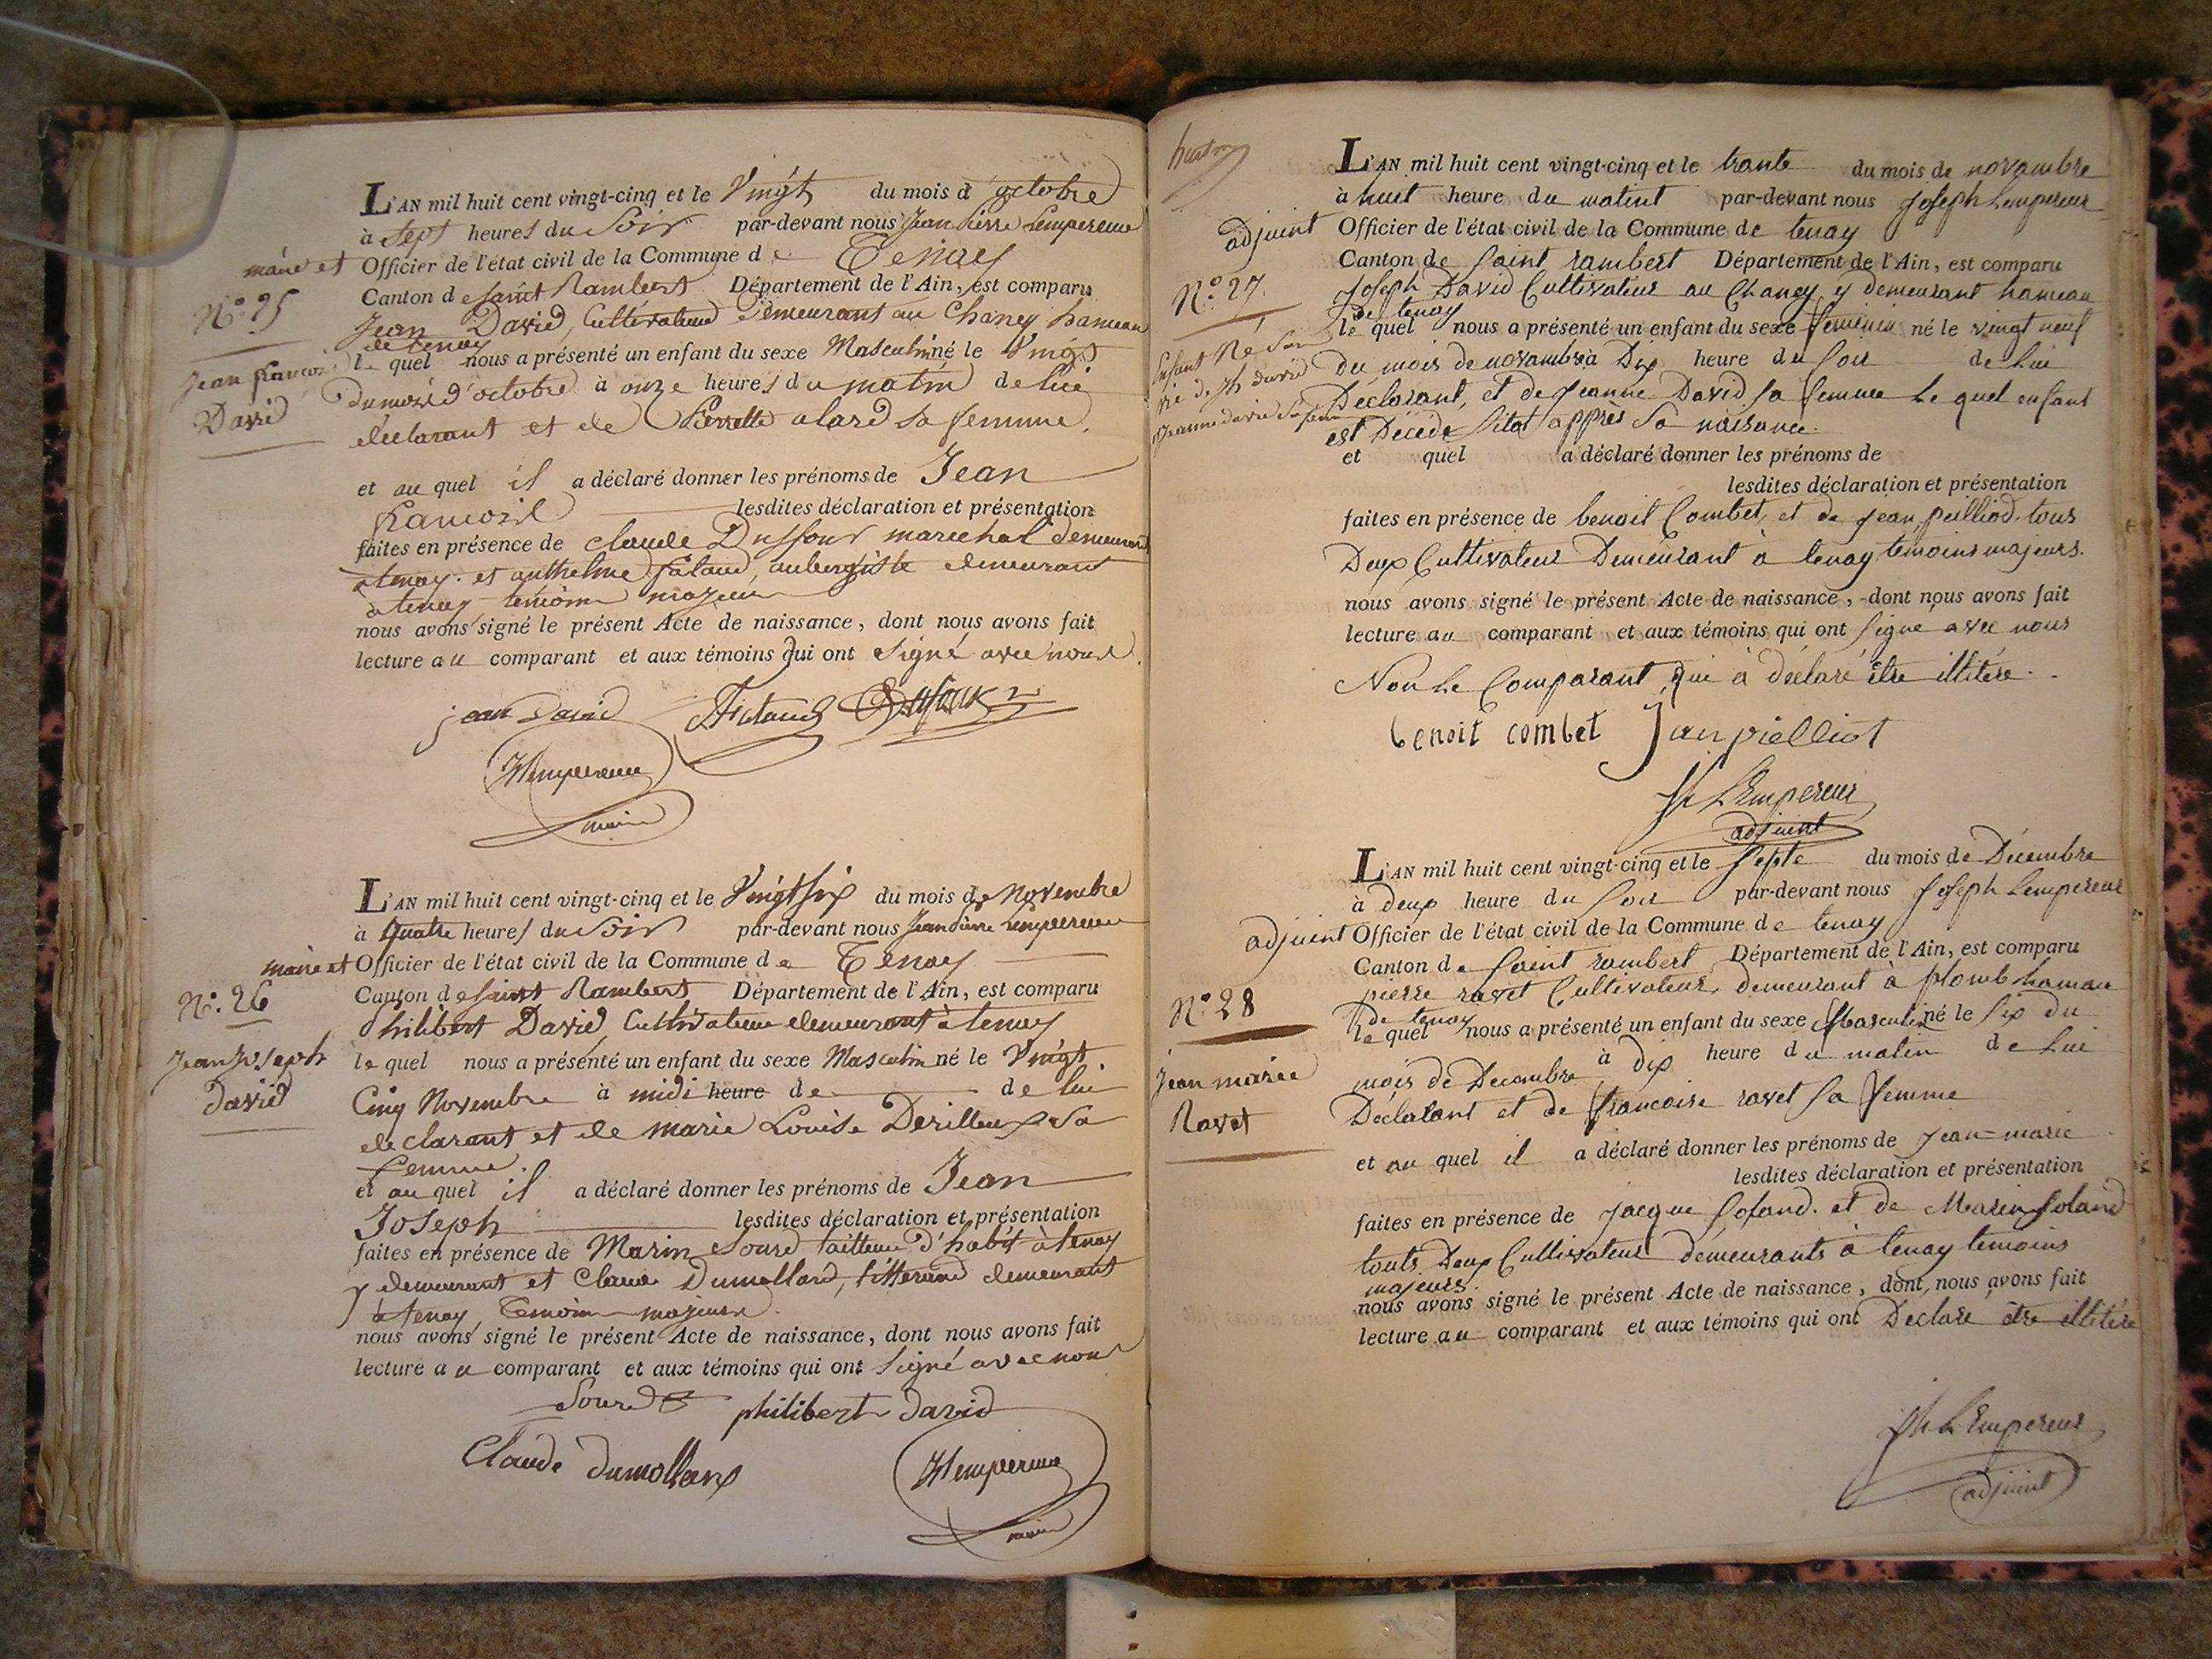 L'AN mil huit cent vingt-cinq et le Vingt du mois d'octobre
à Sept heures du Soir par-devant nous Jean Pierre Lempereur
maire et Officier de l'état civil de la Commune de Tenay
Canton de Saint Rambert Département de l'Ain, est comparu
N.º 25
Jean David, Cultivateur demeurant au Chaney hameau
de tenay
le quel nous a présenté un enfant du sexe Masculin né le Vingt
Jean francois
David
du mois d'octobre à onze heures du matin de lui
declarant et de Pierrette alard sa femme.
et au quel il a déclaré donner les prénoms de Jean
francois lesdites déclaration et présentation
faites en présence de claude Dussour marechal demeurant
a tenay. et anthelme fataud, aubergiste demeurant
a tenay temoins majeurs
nous avons signé le présent Acte de naissance, dont nous avons fait
lecture au comparant et aux témoins qui ont Signé avec nous.
jean David
Lempereur
maire
L'AN mil huit cent vingt-cinq et le Vingt six du mois de Novembre
à quatre heures du Soir par-devant nous Jean Pierre Lempereur
maire et Officier de l'état civil de la Commune de Tenay
Canton de Saint Rambert Département de l'Ain, est comparu
N.º 26
Philibert David, Cultivateur demeurant à tenay
le quel nous a présenté un enfant du sexe Masculin né le Vingt
Jean Joseph
david
Cinq Novembre à midi heure de de lui
declarant et de marie Louise Derilleux sa
femme.
et au quel il a déclaré donner les prénoms de Jean
Joseph lesdites déclaration et présentation
faites en présence de Marin Sourd tailleur d'habit à tenay
y demeurant et Claude Dumollard, tisserand demeurant
à tenay, temoins majeurs.
nous avons signé le présent Acte de naissance, dont nous avons fait
lecture au comparant et aux témoins qui ont Signé avec nous
Sourd philibert david
Claude dumollard
Lempereur
maire
L'AN mil huit cent vingt-cinq et le trante du mois de novambre
à huit heure du matint par-devant nous Joseph Lempereur
adjuint Officier de l'état civil de la Commune de tenay
Canton de Saint rambert Département de l'Ain, est comparu
N.º 27.
Joseph David Cultivateur au Chaney y demeurant hameau
de tenay
le quel nous a présenté un enfant du sexe feminin né le vingt neuf
Enfant Né San
vie de Jh david
et jeanne david sa fem
du mois de novambre à Dix heure du Soir de Lui
Déclarant, et de Jeanne David sa femme Le quel enfant
est Décédé sitot appres Sa naissance.
et quel a déclaré donner les prénoms de
lesdites déclaration et présentation
faites en présence de benoit Combet, et de Jean pelliod. tous
Deux Cultivateur Demeurant à tenay temoins majeurs.
nous avons signé le présent Acte de naissance, dont nous avons fait
lecture au comparant et aux témoins qui ont Signe avec nous
Non Le Comparant qui à déclaré être illitéré.
benoit combet Jean pielliot
Jh LEmpereur
adjuint
L'AN mil huit cent vingt-cinq et le Septe du mois de Décembre
à deux heure du Soir par-devant nous Joseph Lempereur
adjuint Officier de l'état civil de la Commune de tenay
Canton de Saint rambert Département de l'Ain, est comparu
N.º 28
pierre ravet Cultivateur, demeurant à plomb hamau
de tenay
le quel nous a présenté un enfant du sexe Masculin né le Six du
Jean marie
Ravet
mois de Decembre à dix heure du matin de Lui
Déclarant et de francoise ravet sa femme
et au quel il a déclaré donner les prénoms de Jean=marie
lesdites déclaration et présentation
faites en présence de jacque Gofand. et de Marin foland
touts Deux Cultivateur demeurants à tenay temoins
majeurs.
nous avons signé le présent Acte de naissance, dont nous avons fait
lecture au comparant et aux témoins qui ont Declaré être illitéré
Jh LEmpereur
adjuint